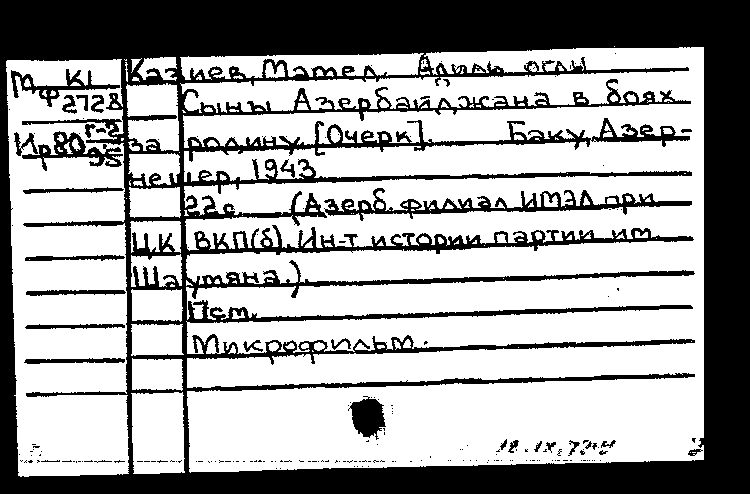 Мф К1 2728
Ир80 г-2 95
Казиев, Мамед Адиль оглы
Сыны Азербайджана в боях
за родину. [Очерк]. Баку, Азер-
нешр, 1943
22с. (Азерб. филиал ИМЭЛ при
ЦК ВКП(б). Ин-т истории партии им.
Шаумяна.).
Пст.
Микрофильм.